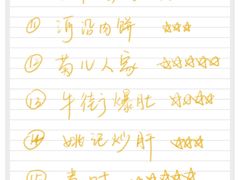 ⑪ 河沿肉饼 ☆☆☆
⑫ 菊儿人家 ☆☆☆☆☆
⑬ 牛街爆肚 ☆☆☆☆
⑭ 姚记炒肝 ☆☆☆☆
⑮